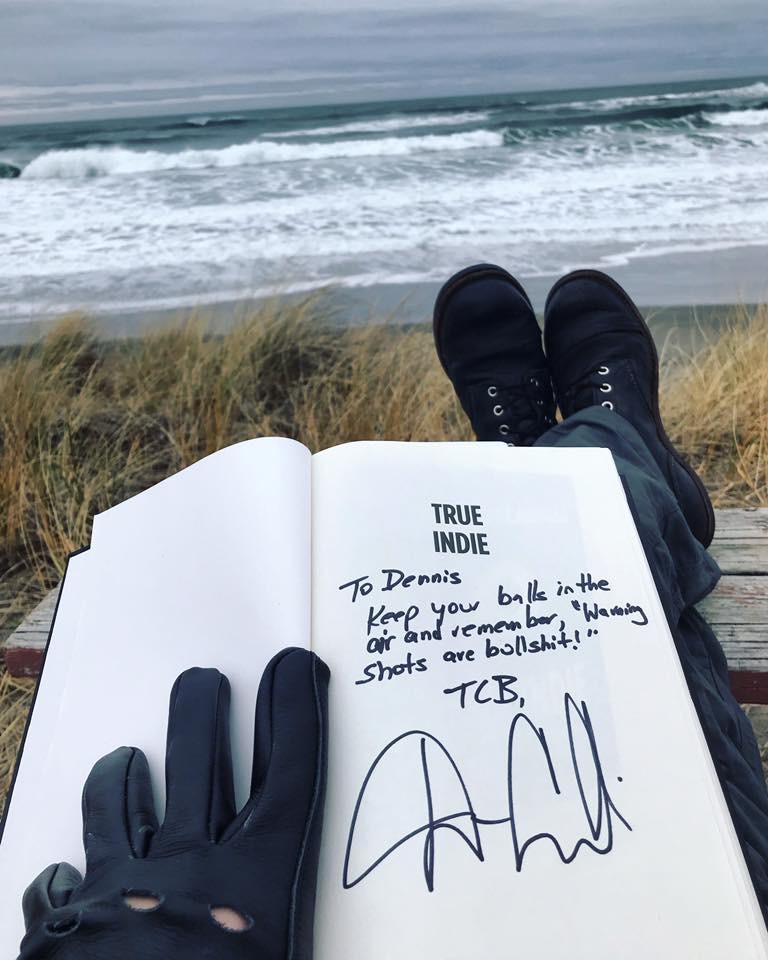 TRUE
INDIE
To Dennis
Keep your balls in the
air and remember, "Warning
shots are bullshit!"
TCB,